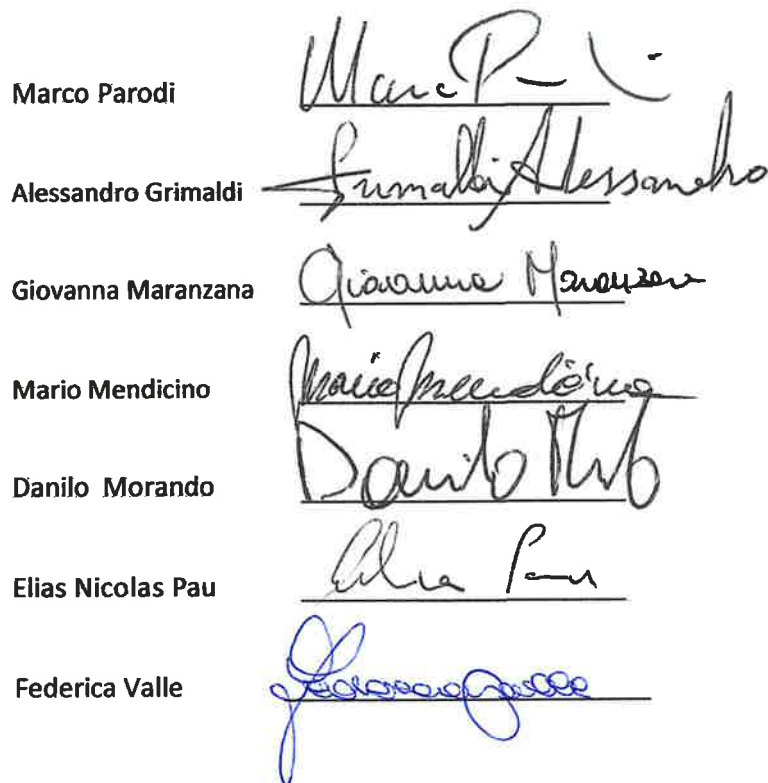 Marco Parodi Marc P
Alessandro Grimaldi Grimaldi Alessandro
Giovanna Maranzana Giovanna Maranzana
Mario Mendicino Mario Mendicino
Danilo Morando Danilo
Elias Nicolas Pau Elias Pau
Federica Valle Federica Valle